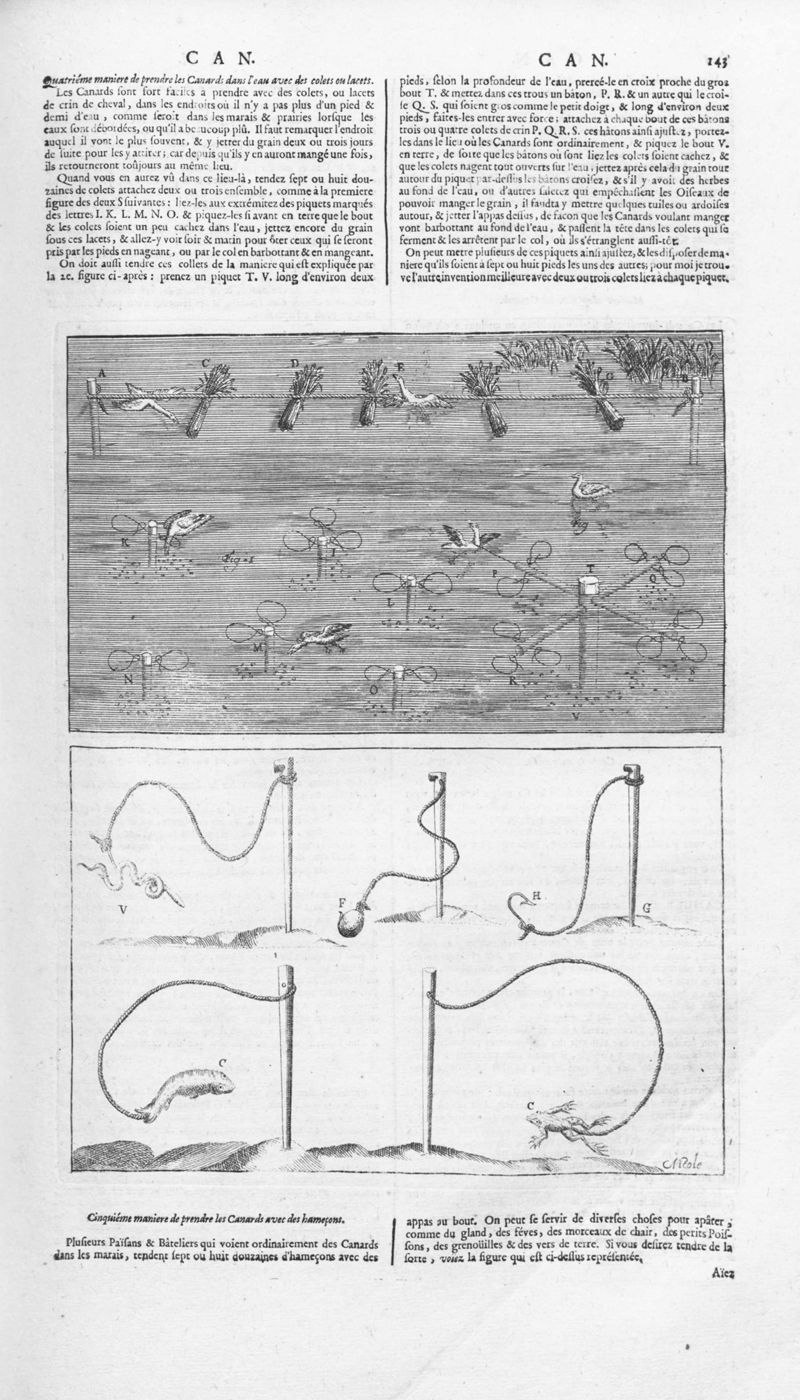 C A N.
Quatriéme maniere de prendre les Canards dans l'eau avec des colets ou lacets.
Les Canards sont fort faciles à prendre avec des colets, ou lacets
de crin de cheval, dans les endroits où il n'y a pas plus d'un pied &
demi d'eau, comme seroit dans les marais & prairies lorsque les
eaux sont débordées, ou qu'il a beaucoup plû. Il faut remarquer l'endroit
auquel il vont le plus souvent, & y jetter du grain deux ou trois jours
de suite pour les y attirer; car depuis qu'ils y en auront mangé une fois,
ils retourneront toûjours au même lieu.
Quand vous en aurez vû dans ce lieu-là, tendez sept ou huit dou-
zaines de colets attachez deux ou trois ensemble, comme à la premiere
figure des deux suivantes: liez-les aux extrémitez des piquets marqués
des lettres I. K. L. M. N. O. & piquez-les si avant en terre que le bout
& les colets soient un peu cachez dans l'eau, jettez encore du grain
sous ces lacets, & allez-y voir soir & matin pour ôter ceux qui se seront
pris par les pieds en nageant, ou par le col en barbottant & en mangeant.
On doit aussi tendre ces collets de la maniere qui est expliquée par
la 2e. figure ci-après: prenez un piquet T. V. long d'environ deux
C A N.
143
pieds, selon la profondeur de l'eau, percé-le en croix proche du gros
bout T. & mettez dans ces trous un bâton, P. R. & un autre qui le croi-
se Q. S. qui soient gros comme le petit doigt, & long d'environ deux
pieds, faites-les entrer avec force; attachez à chaque bout de ces bâtons
trois ou quatre colets de crin P. Q. R. S. ces bâtons ainsi ajustez, portez-
les dans le lieu où les Canards sont ordinairement, & piquez le bout V.
en terre, de sorte que les bâtons où sont liez les colets soient cachez, &
que les colets nagent tout ouverts sur l'eau; jettez après cela du grain tout
autour du piquet par-dessus les bâtons croisez, & s'il y avoit des herbes
au fond de l'eau, ou d'autres saletez qui empêchassent les Oiseaux de
pouvoir manger le grain, il faudra y mettre quelques tuiles ou ardoises
autour, & jetter l'appas dessus, de façon que les Canards voulant manger
vont barbottant au fond de l'eau, & passent la tête dans les colets qui se
ferment & les arrêtent par le col, où ils s'étranglent aussi-tôt.
On peut metre plusieurs de ces piquets ainsi ajustez, & les disposer de ma-
niere qu'ils soient à sept ou huit pieds les uns des autres; pour moi je trou-
ve l'autre invention meilleure avec deux ou trois colets liez à chaque piquet.
A
C
D
E
F
G
B
K
Fig. 1
I
L
P
T
Q
M
N
O
R
S
V
V
F
H
G
C
C
Cinquiéme maniere de prendre les Canards avec des hameçons.
Plusieurs Païsans & Bâteliers qui voient ordinairement des Canards
dans les marais, tendent sept ou huit douzaines d'hameçons avec des
appas au bout. On peut se servir de diverses choses pour apâter,
comme du gland, des féves, des morceaux de chair, des petits Pois-
sons, des grenoüilles & des vers de terre. Si vous desirez tendre de la
sorte, voiez la figure qui est ci-dessus représentée.
Aïez